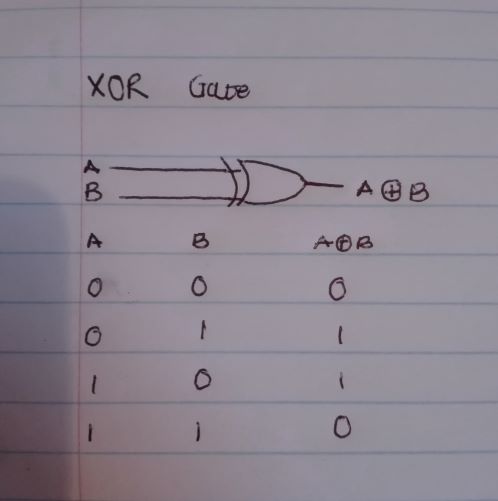 XOR Gate
A
B A ⊕ B
A B A⊕B
0 0 0
0 1 1
1 0 1
1 1 0